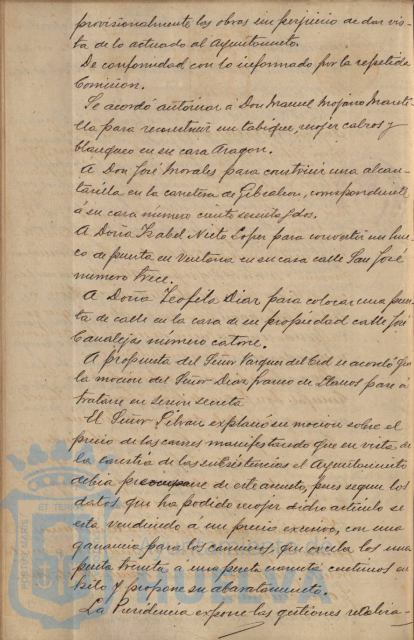 provisionalmente las obras sin perjuicio de dar vis-
ta de lo actuado al Ayuntamiento.
De conformidad con lo informado por la repetida
Comision.
Se acordó autorizar á Don Manuel Mojarro Manti-
lla para reconstruir un tabique, recojer calizos y
blanqueo en su casa Aragon.
A Don José Morales para construir una alcan-
tarilla en la carretera de Gibraleon, correspondiente
á su casa número ciento sesenta y dos.
A Doña Isabel Nieto Lopez para convertir un hue-
co de puerta en Ventana en su casa calle San José
número trece.
A Doña Teofila Diaz para colocar una puer-
ta de calle en la casa de su propiedad calle José
Canalejas número catorce.
A propuesta del Señor Vazquez del Cid se acordó que
la mocion del Señor Diaz Franco de Llanos pase á
tratarse en sesion secreta
El Señor explanó su mocion sobre el
precio de las carnes manifestando que en vista de
la carestia de las subsistencias el Ayuntamiento
debia preocuparse de este asunto, pues segun los
datos que ha podido recojer dicho articulo se
está vendiendo á un precio excesivo, con una
ganancia para los carniceros, que oscila los una
peseta treinta á una peseta cincuenta centimos en
kilo y propone su abaratamiento.
La Presidencia expone las gestiones